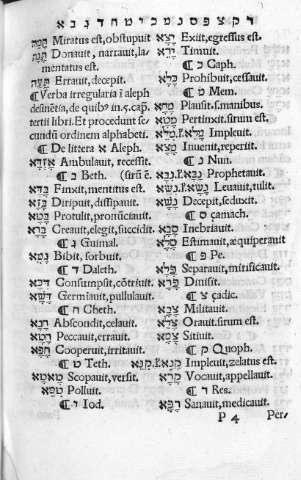 ד ק צ פ ס נ מ כ י ט ח ד ג ב א
תָּמַהּ Miratus est, obstupuit
תָּנָה Donauit, narrauit, la-
mentatus est.
תָּעָה Errauit, decepit.
¶ Verba irregularia ī aleph
desinētia, de quib⁹ in .5. cap̄.
tertii libri. Et procedunt se
cundū ordinem alphabeti.
¶ De littera א Aleph.
Ambulauit, recessit.
¶ ב Beth.
בָּדָא Finxit, mentitus est.
בָּזָא Diripuit, dissipauit.
בָּטָא Protulit, pronūciauit.
בָּרָא Creauit, elegit, succidit.
¶ ג Guimal.
גָּמָא Bibit, sorbuit.
¶ ד Daleth.
דָּכָא Consumpsit, cōtriuit.
דָּשָׁא Germīauit, pullulauit.
¶ ח Cheth.
חָבָא Abscondit, celauit.
חָטָא Peccauit, errauit.
חָפָא Cooperuit, irritauit.
¶ ט Teth.
Scopauit, versit.
טָמֵא Polluit.
¶ י Iod.
יָצָא Exiit, egressus est.
יָרֵא Timuit.
¶ כ Caph.
כָּלָא Prohibuit, cessauit.
¶ מ Mem.
מָחָא Plausit .s. manibus.
מָצָא Pertinxit. sirum est.
מָלָא Impleuit.
מָצָא Inuenit, reperiit.
¶ נ Nun.
נָבָא Prophetauit.
נָשָׂא Leuauit, tulit.
נָשָׁא Decepit, seduxit.
¶ ס çamach.
סָבָא Inebriauit.
סָלָא Estimauit, æquiperauit
¶ פ Pe.
פָּלָא Separauit, mirificauit.
Dimisit.
¶ צ çadic.
צָבָא Militauit.
צָלָא Orauit. sirum est.
צָמָא Sitiuit.
¶ ק Quoph.
קָנָא Impleuit, zelatus est.
קָרָא Vocauit, appellauit.
¶ ר Res.
רָפָא Sanauit, medicauit.
P 4 Per,